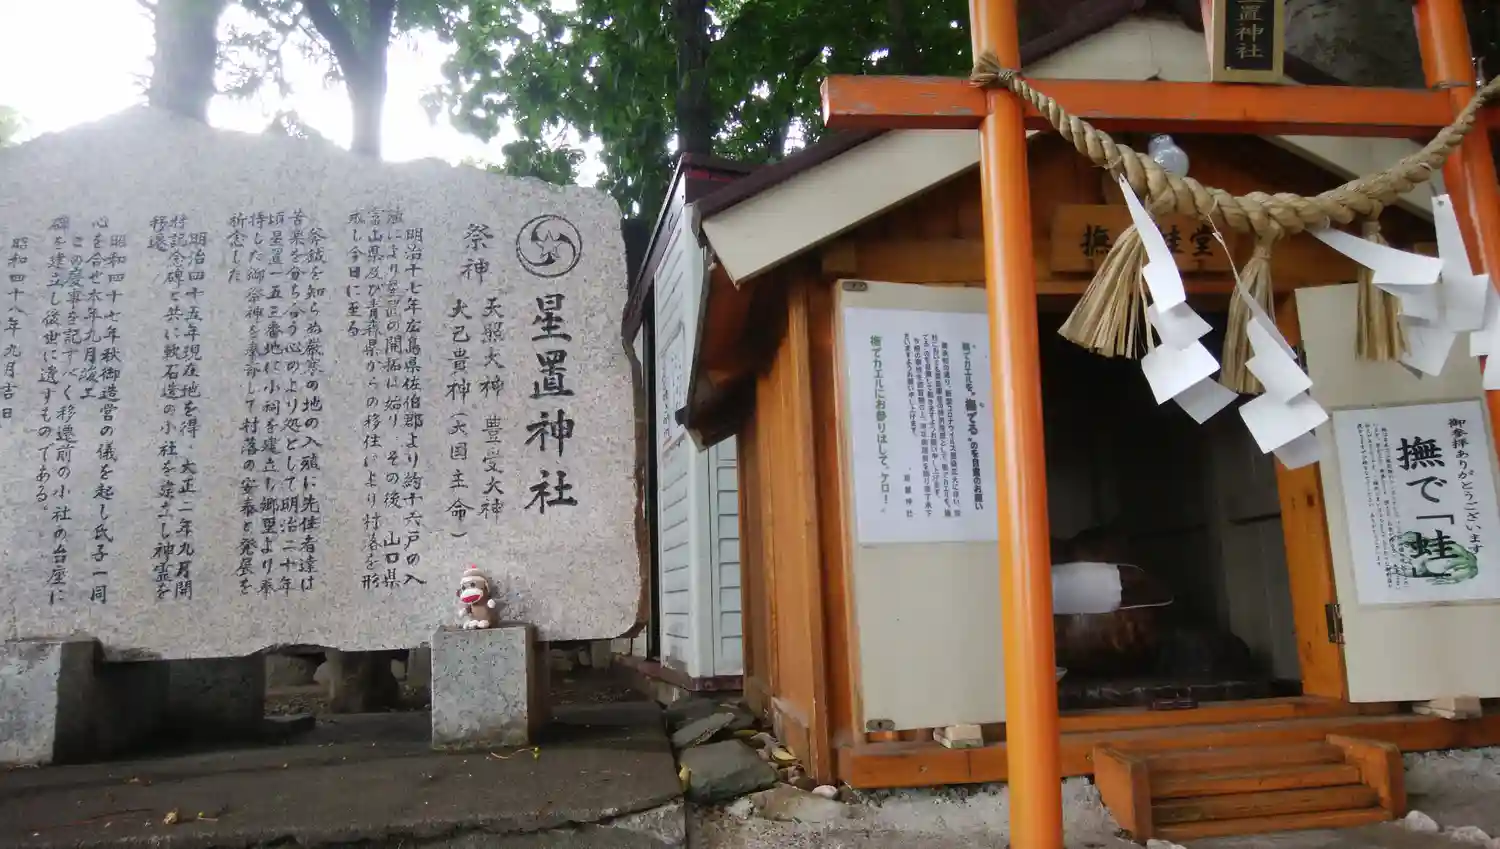 星置神社
祭神 天照大神 豊受大神
大己貴神(大国主命)
明治十七年広島県佐伯郡より約十六戸の入
植により星置の開拓は始り、その後、山口県
富山県及び青森県からの移住により村落を形
成し今日に至る
斧鉞を知らぬ厳寒の地の入殖に先住者達は
苦楽を分ち合う心のより処として明治二十年
頃星置一五三番地に小祠を建立し郷里より奉
持した御祭神を奉斎して村落の安泰と発展を
祈念した
明治四十五年現在地を得、大正二年九月開
村記念碑と共に軟石造の小社を建立し神霊を
移遷
昭和四十七年秋御造営の儀を起し氏子一同
心を合せ本年九月竣工
この慶事を記すべく移遷前の小社の台座に
碑を建立し後世に遺すものである。
昭和四十八年九月吉日
星置神社
撫で蛙堂
撫でカエルを、"撫でる"のを自粛のお願い
撫でカエルにお参りはして、ケロ!
星置神社
御参拝ありがとうございます
撫で「蛙」